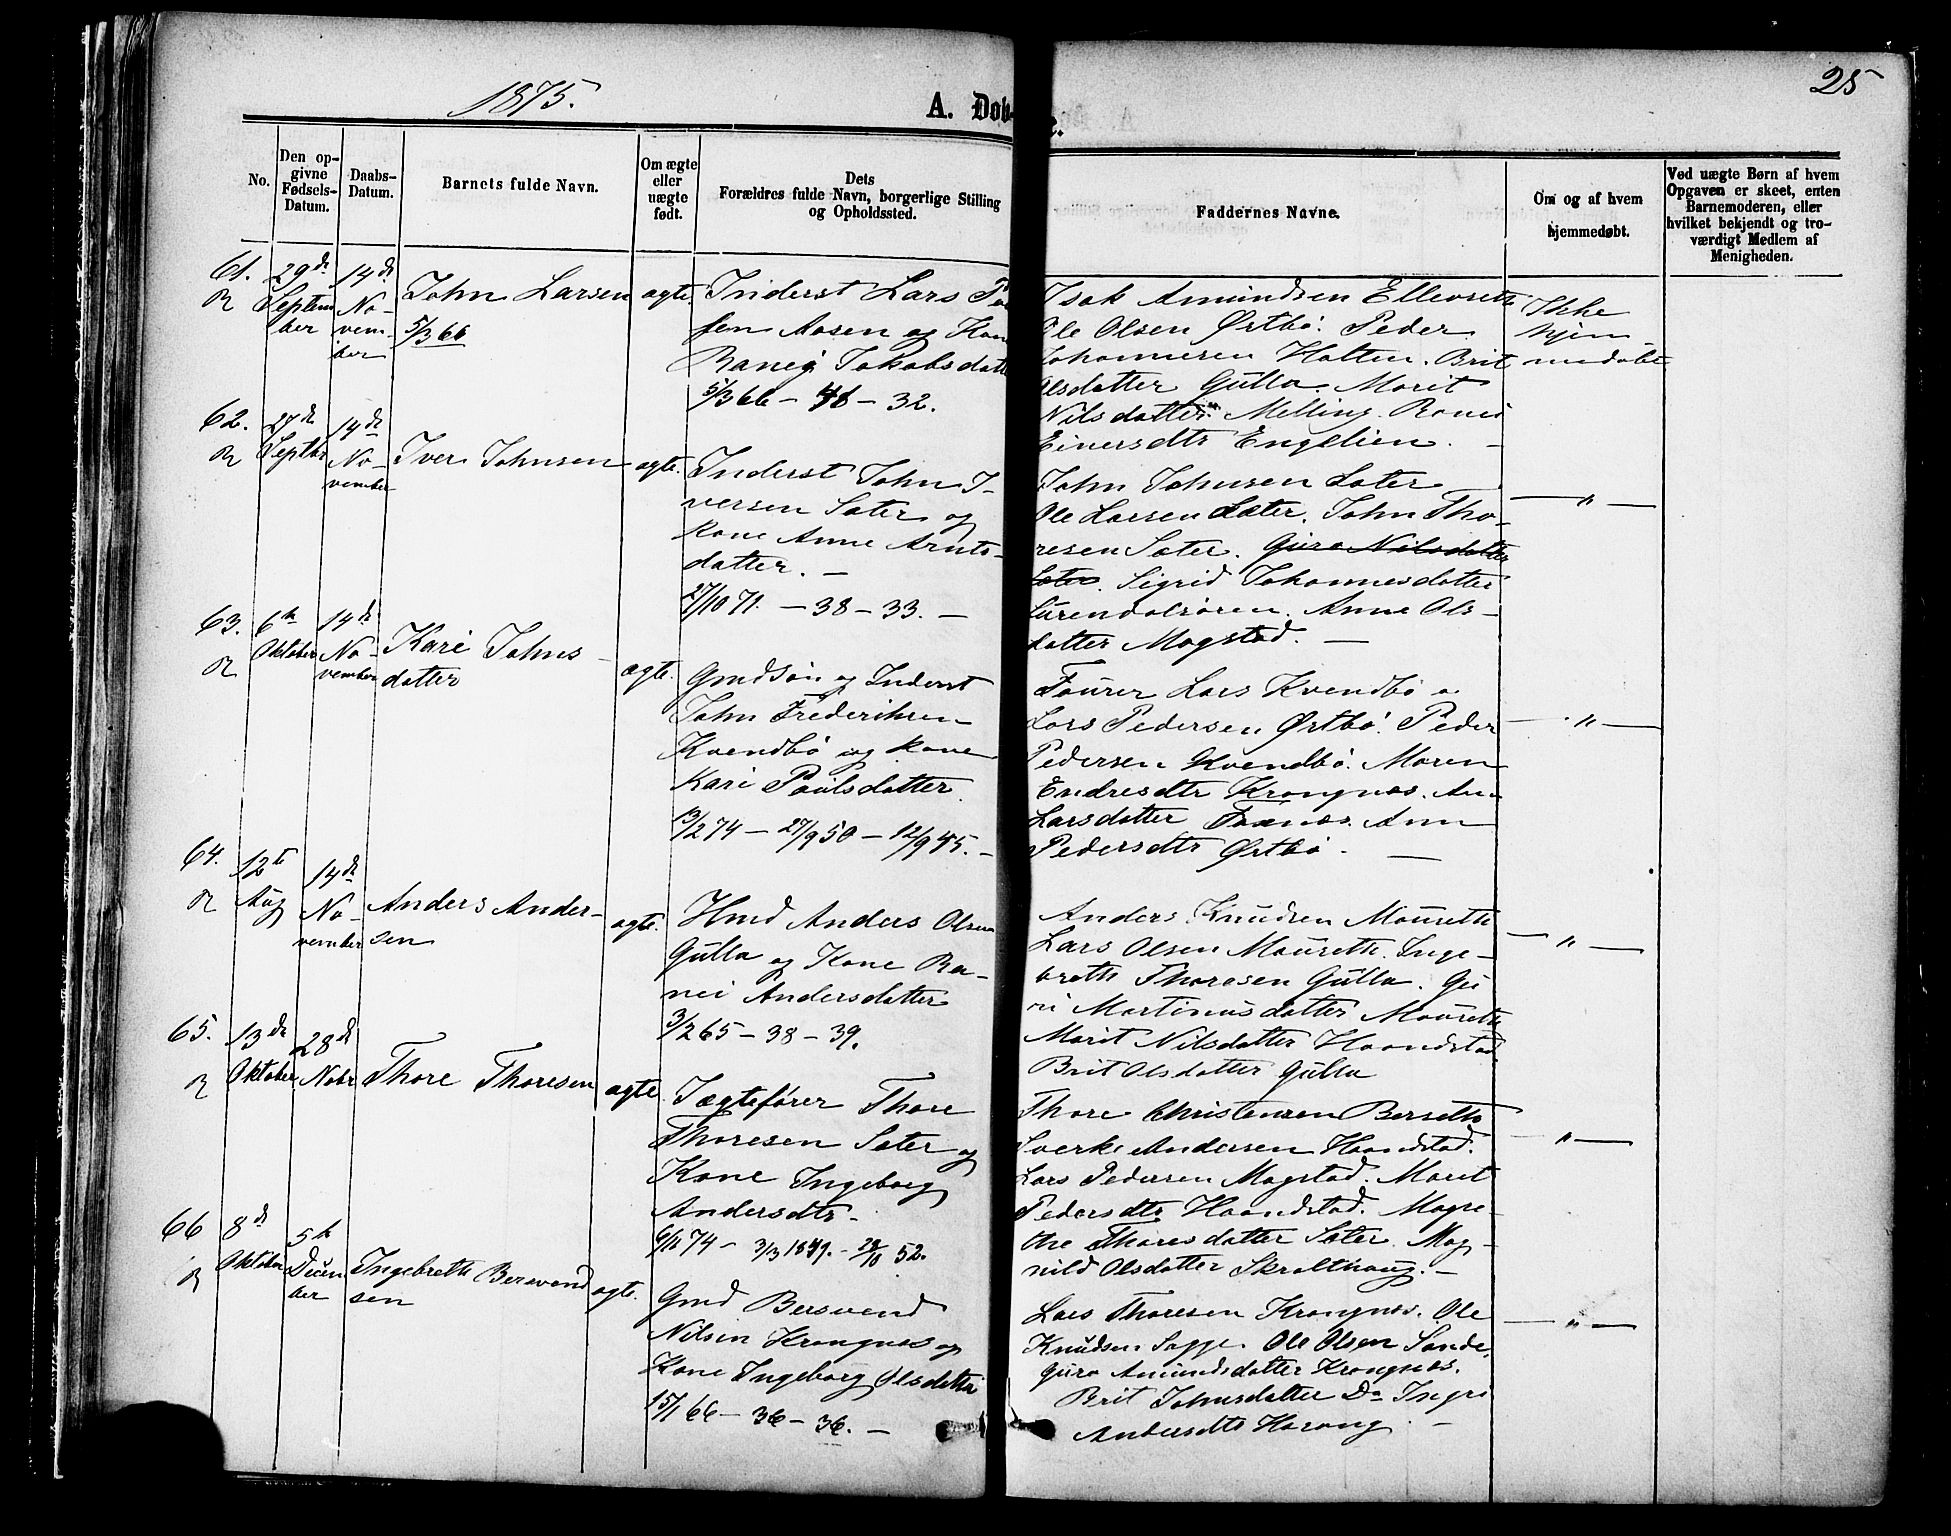 1875.
A. Døb-
e.
25
No.
Den op-
givne
Fødsels-
Datum.
Daabs-
Datum.
Barnets fulde Navn.
Om ægte
eller
uægte
født.
Dets
Forældres fulde Navn, borgerlige Stilling
og Opholdssted.
Faddernes Navne.
Om og af hvem
hjemmedøbt.
Ved uægte Børn af hvem
Opgaven er skeet, enten
Barnemoderen, eller
hvilket bekjendt og tro-
værdigt Medlem af
Menigheden.
61.
R
29de
Septem
ber
14de
No-
vem-
ber
John Larsen
5/3 66
ægte
Inderst Lars
sen Aasen og Kon
Ranei Jakobsdatt
5/3 66 – 46 – 32.
Isak Amundsen Ellevseth
Ole Olsen Østbø. Peder
Johannesen Holten. Brit
Olsdatter Gulla. Marit
Nilsdatter Melling. Ranei
Einersdtr Engelien. –
Ikke
hjem-
medøbt
62.
R
27de
Septbr
14de
No-
vember
Iver Johnsen
ægte.
Inderst John I-
versen Sæter og
Kone Anne Arnts-
datter. –
27/10 71. – 38 – 33. –
John Johnsen Sæter
Ole Larsen Sæter. John Tho-
resen Sæter. Guro Nilsdatter
Sæter. Sigrid Johannesdatter
Surendalsøren. Anne Ols-
datter Mogstad. –
– " –
63.
R
6te
Oktober
14de
No-
vember
Kari Johns-
datter
ægte.
Gmdsøn og Inderst
John Frederiksen
Kvendbø og Kone
Kari Paulsdatter.
13/2 74 – 27/9 50 – 12/9 45. –
Fourer Lars Kvendbø
Lars Pedersen Østbø. Peder
Pedersen Kvendbø. Maren
Endresdtr Krangnæs. An
Larsdatter Ann
Pedersdtr Østbø. –
– " –
64.
R
12te
Aug
14de
No-
vember
Anders Ander-
sen
ægte.
Hmd Anders Olsen
Gulla og Kone Ra-
nei Andersdatter
3/2 65 – 38 – 39.
Anders Knudsen Mauseth
Lars Olsen Mauseth. Inge-
breth Thoresen Gulla. Gu
ri Martinusdatter Mauseth
Marit Nilsdatter Haandstad
Brit Olsdatter Gulla
– " –
65.
R
13de
Oktober
28de
Nobr
Thore Thoresen
ægte
Jægtefører Thore
Thoresen Sæter og
Kone Ingeborg
Andersdtr.
6/11 74 – 3/3 1849. – 28/10 52.
Thore Christensen Berseth
Sverke Andersen Haandstad.
Lars Pedersen Mogstad. Marit
Pedersdtr Haandstad. Magre-
the Thoresdatter Sæter. Mag-
nild Olsdatter Skralthaug. –
– " –
66
R
8de
Oktober
5te
Decem
ber
Ingebreth Bersvend
sen
ægte.
Gmd Bersvend
Nilsen Krangnæs og
Kone Ingeborg Olsdatter
15/1 66 – 36 – 36. –
Lars Thoresen Krangnæs. Ole
Knudsen Sogge. Ole Olsen Sande.
Guro Amundsdatter Krangnæs.
Brit Johnsdatter Do Ingri
Andersdtr Harang. –
– " –